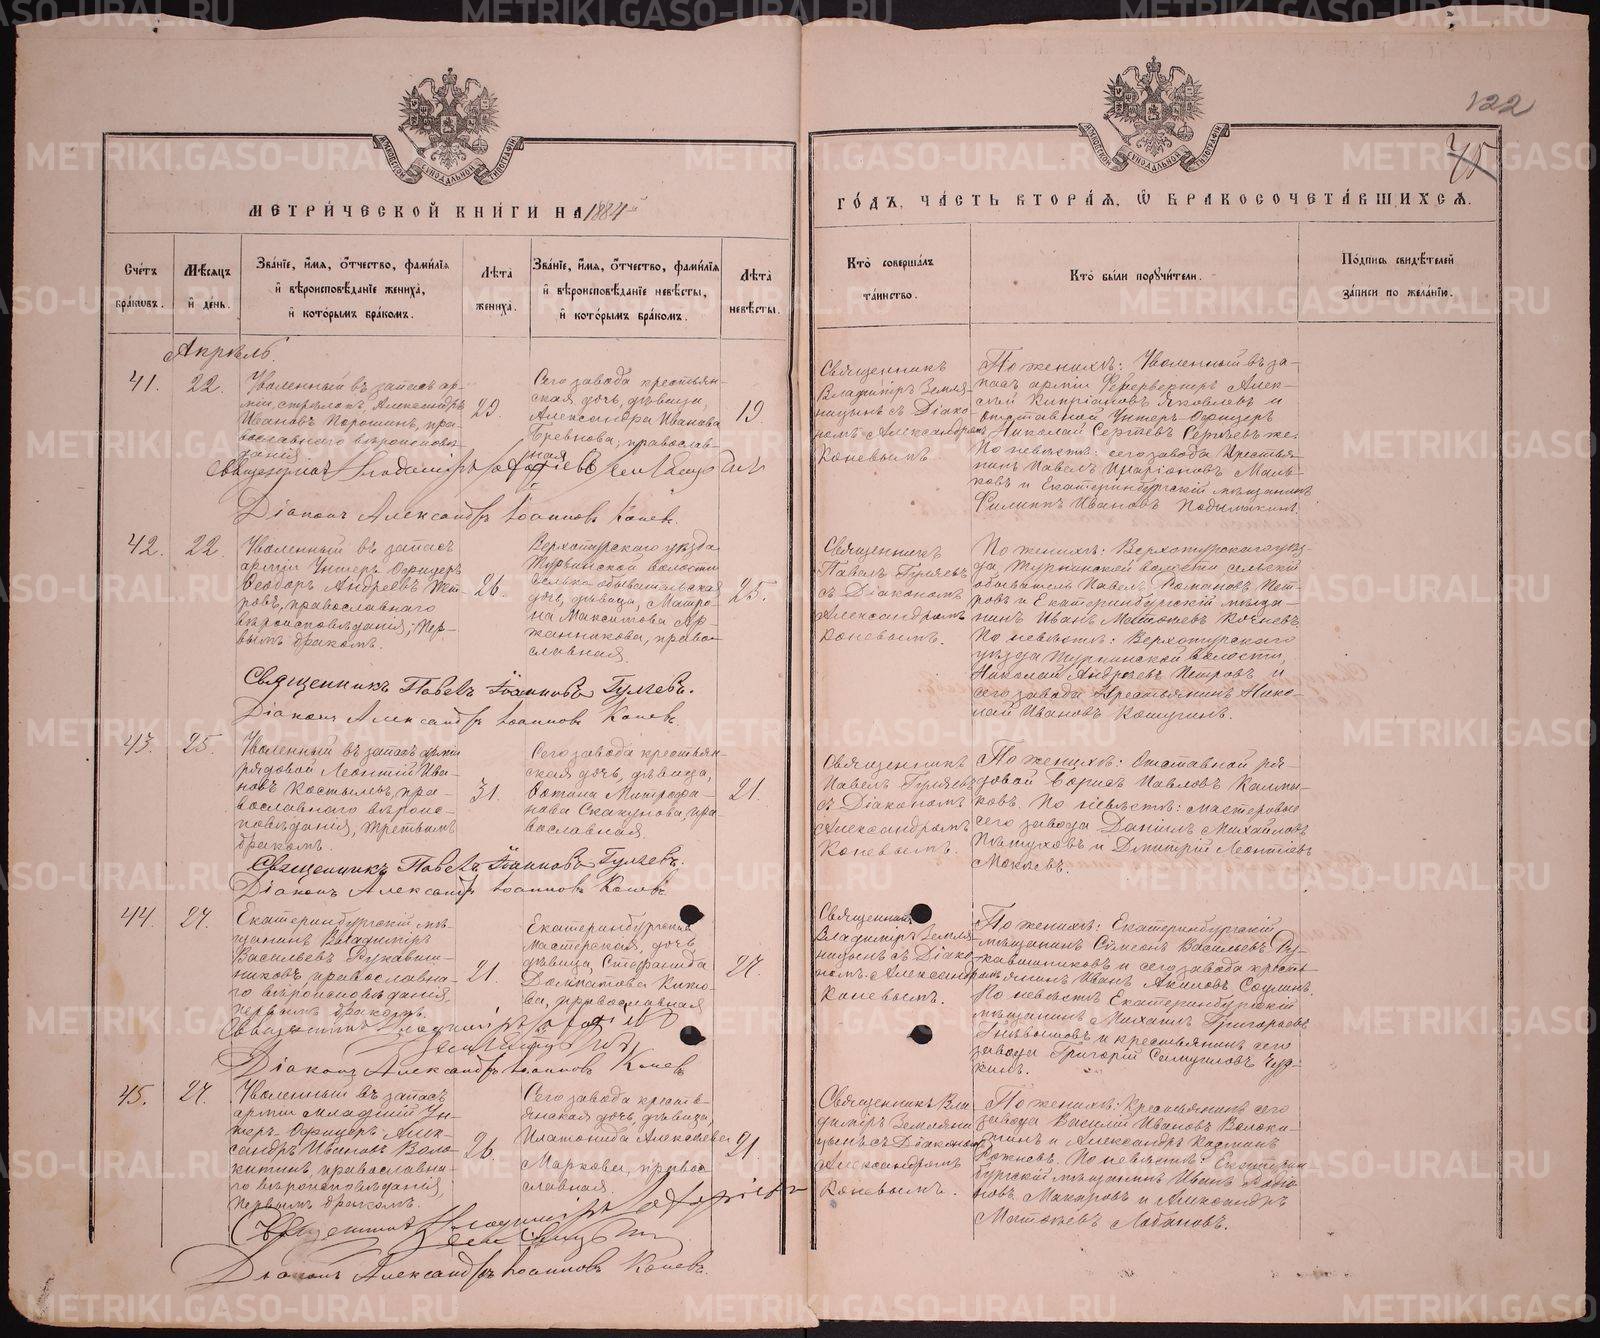 122
75
МЕТРИ́ЧЕСКОЙ КНИ́ГИ НА 1884й
ГО́ДЪ, ЧА́СТЬ ВТОРА́Я, Ѡ БРАКОСОЧЕТА́ВШИХСЯ.
Сче́тъ бра́ковъ.
Мѣ́сяцъ и де́нь.
Зва́ніе, и́мя, о́тчество, фами́лія
и вѣроисповѣ́даніе жениха́,
и кото́рымъ бра́комъ.
Лѣ́та жениха́.
Зва́ніе, и́мя, о́тчество, фами́лія
и вѣроисповѣ́даніе невѣ́сты,
и кото́рымъ бра́комъ.
Лѣ́та невѣ́сты.
Кто́ соверша́лъ
та́инство.
Кто́ бы́ли поручи́тели.
По́дпись свидѣ́телей
за́писи по жела́нію.
Апрѣль.
41.
22.
Уволенный въ запасъ ар-
міи, стрѣлокъ, Александръ
Ивановъ Порошинъ, пра-
вославнаго вѣроисповѣ-
данія.
29.
Сего завода крестьян-
ская дочь, дѣвица,
Александра Иванова
Бревнова, православ-
ная.
19
Священникъ
Владиміръ Земля-
ницынъ съ Діако-
номъ Александромъ
Коневымъ.
По женихѣ: Уволенный въ за-
пасъ арміи Фейерверкеръ Алек-
сѣй Кипріановъ Яковлевъ и
отставной Унтеръ-Офицеръ
Николай Сергѣевъ Сергѣевъ же.
По невѣстѣ: сего завода Крестья-
нинъ Павелъ Иларіоновъ Маль-
ковъ и Екатеринбургскій мѣщанинъ
Филиппъ Ивановъ
Священникъ Владиміръ
Діаконъ Александръ Іоанновъ Коневъ.
42.
22.
Уволенный въ запасъ
арміи Унтеръ-Офицеръ
Ѳеодоръ Андреевъ Пет-
ровъ, православнаго
вѣроисповѣданія, пер-
вымъ бракомъ.
26.
Верхотурскаго уѣзда
волости
сельская обывательская
дочь, дѣвица, Матро-
на Максимова Ар-
жанникова, право-
славная.
25.
Священникъ
Павелъ Гуляевъ
съ Діакономъ
Александромъ
Коневымъ.
По женихѣ: Верхотурскаго уѣз-
да, волости сельскій
обыватель Павелъ Семеновъ Пет-
ровъ и Екатеринбургскій мѣща-
нинъ Иванъ Матѳеевъ Кочневъ
По невѣстѣ: Верхотурскаго
уѣзда волости,
Николай Андреевъ Петровъ и
сего завода Крестьянинъ Нико-
лай Ивановъ Кошугинъ.
Священникъ Павелъ Іоанновъ Гуляевъ.
Діаконъ Александръ Іоанновъ Коневъ.
43.
25.
Уволенный въ запасъ арміи
рядовой Леонтій Ива-
новъ Костылевъ, пра-
вославнаго вѣроис-
повѣданія, третьимъ
бракомъ.
31.
Сего завода крестьян-
ская дочь, дѣвица,
Фотина Митрофа-
нова Скакунова, пра-
вославная.
21.
Священникъ
Павелъ Гуляевъ
съ Діакономъ
Александромъ
Коневымъ.
По женихѣ: Отставной ря-
довой Борисъ Павловъ Калмы-
ковъ. По невѣстѣ: мастеровые
сего завода Даніилъ Михайловъ
Пѣтуховъ и Дмитрій Леонтіевъ
Мокѣевъ.
Священникъ Павелъ Іоанновъ Гуляевъ.
Діаконъ Александръ Іоанновъ Коневъ
44.
27.
Екатеринбургскій мѣ-
щанинъ Владиміръ
Васильевъ Рукавиш-
никовъ, православна-
го вѣроисповѣданія,
первымъ бракомъ.
21.
Екатеринбургская
мастерская дочь
дѣвица, Стефанида
Долматова Кито-
ва, православная
27.
Священникъ
Владиміръ Земля-
ницынъ съ Діако-
номъ Александромъ
Коневымъ.
По женихѣ: Екатеринбургскій
мѣщанинъ Симеонъ Васильевъ Ру-
кавишниковъ и сего завода кресть-
янинъ Иванъ Акиловъ
По невѣстѣ Екатеринбургскій
мѣщанинъ Михаилъ Григорьевъ
и крестьянинъ сего
завода Григорій Самуиловъ Чуд-
кинъ.
Священникъ Владиміръ
Діаконъ Александръ Іоанновъ Коневъ
45.
27.
Уволенный въ запасъ
арміи Младшій Ун-
теръ-Офицеръ Алек-
сандръ Ивановъ Воло-
китинъ православна-
го вѣроисповѣданія,
первымъ бракомъ.
26.
Сего завода кресть-
янская дочь, дѣвица,
Платонида Алексѣева
Маркова, право-
славная.
21.
Священникъ Вла-
диміръ Земляни-
цынъ съ Діакономъ
Александромъ
Коневымъ.
По женихѣ: Крестьянинъ сего
завода Василій Ивановъ Волоки-
тинъ и Александръ
Кожновъ. По невѣстѣ: Екатерин-
бургскій мѣщанинъ Иванъ
Макаровъ и Александръ
Матѳеевъ Лобановъ.
Священникъ Владиміръ
Діаконъ Александръ Іоанновъ Коневъ.
METRIKI.GASO-URAL.RU